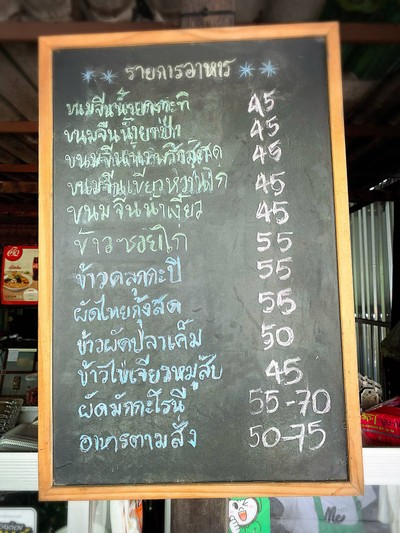 รายการอาหาร
ขนมจีนน้ำยากะทิ 45
ขนมจีนน้ำยาป่า 45
ขนมจีนน้ำพริกกุ้งสด 45
ขนมจีนเขียวหวานไก่ 45
ขนมจีนน้ำเงี้ยว 45
ข้าวซอยไก่ 55
ข้าวคลุกกะปิ 55
ผัดไทยกุ้งสด 55
ข้าวผัดปลาเค็ม 50
ข้าวไข่เจียวหมูสับ 45
ผัดมักกะโรนี 55-70
อาหารตามสั่ง 50-75
Me